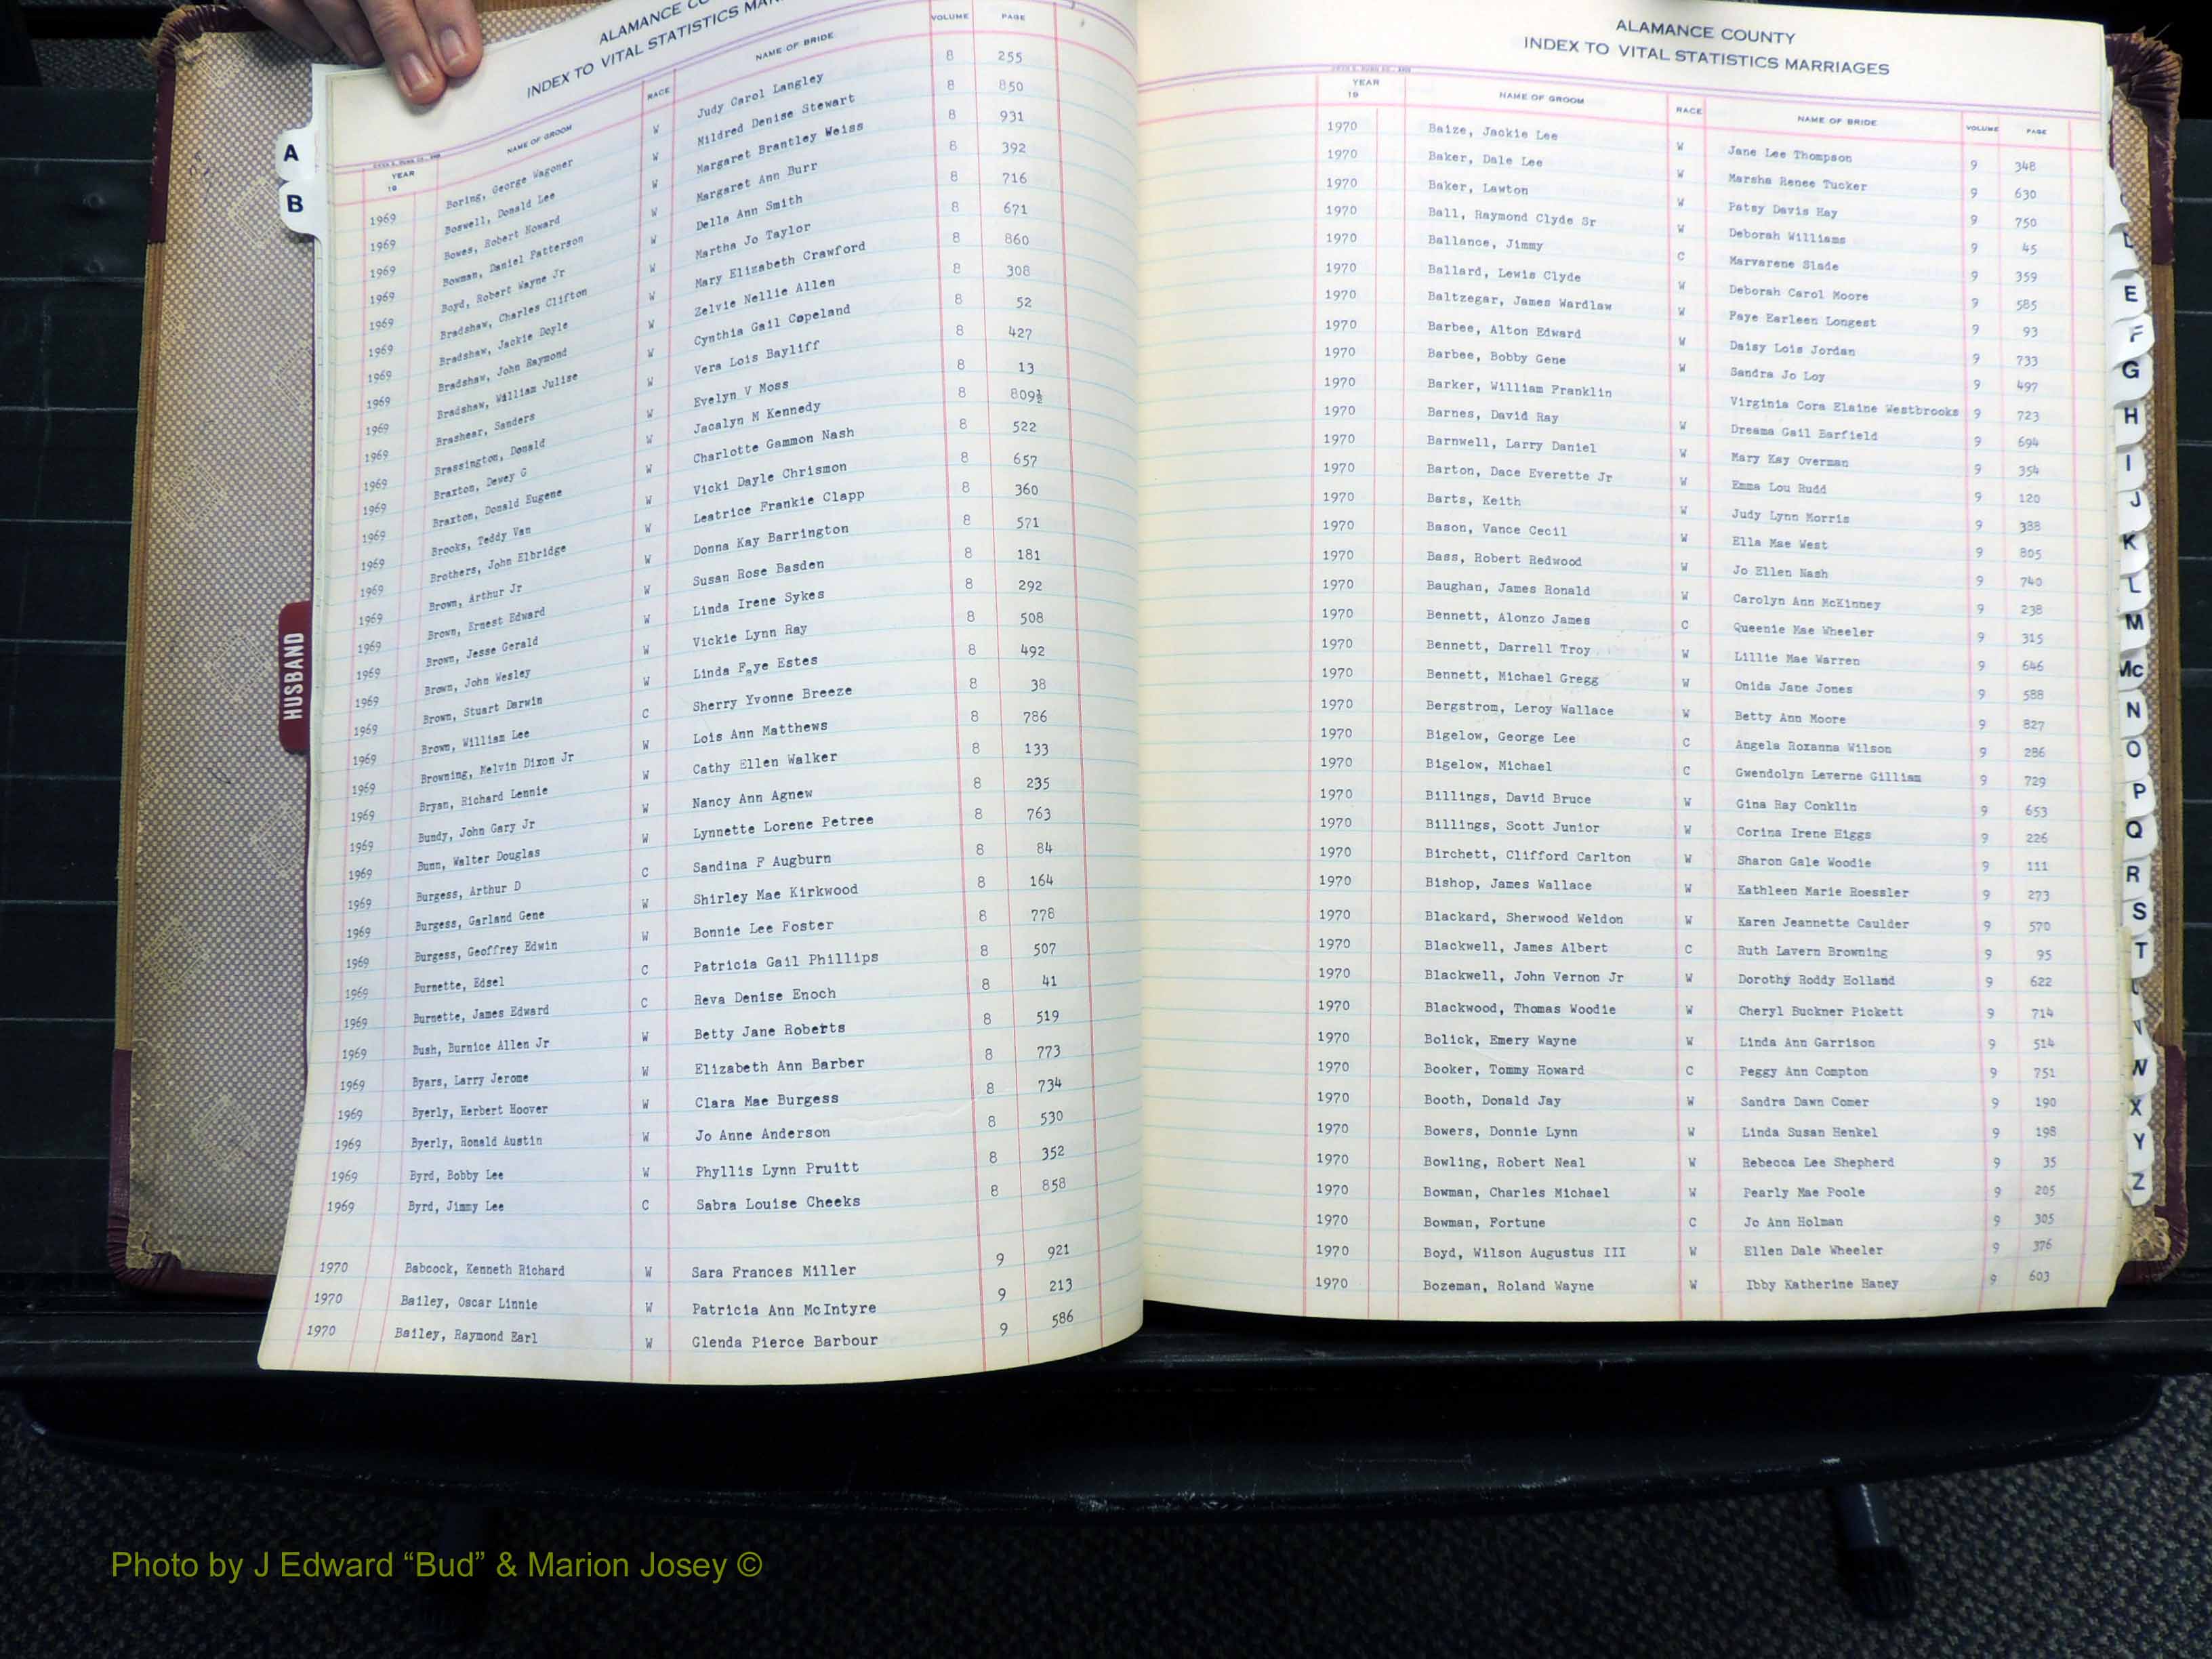 ALAMANCE
INDEX TO VITAL STATISTICS
YEAR 19 NAME OF GROOM RACE NAME OF BRIDE VOLUME PAGE
1969 Boring, George Wagoner W Judy Carol Langley 8 255
1969 Boswell, Donald Lee W Mildred Denise Stewart 8 850
1969 Bowes, Robert Howard W Margaret Brantley Weiss 8 931
1969 Bowman, Daniel Patterson W Margaret Ann Burr 8 392
1969 Boyd, Robert Wayne Jr W Della Ann Smith 8 716
1969 Bradshaw, Charles Clifton W Martha Jo Taylor 8 671
1969 Bradshaw, Jackie Doyle W Mary Elizabeth Crawford 8 860
1969 Bradshaw, John Raymond W Zelvie Nellie Allen 8 308
1969 Bradshaw, William Julise W Cynthia Gail Copeland 8 52
1969 Brashear, Sanders W Vera Lois Bayliff 8 427
1969 Brassington, Donald W Evelyn V Moss 8 13
1969 Braxton, Dewey G W Jacalyn M Kennedy 8 809½
1969 Braxton, Donald Eugene W Charlotte Gammon Nash 8 522
1969 Brooks, Teddy Van W Vicki Dayle Chrismon 8 657
1969 Brothers, John Elbridge W Leatrice Frankie Clapp 8 360
1969 Brown, Arthur Jr W Donna Kay Barrington 8 571
1969 Brown, Ernest Edward W Susan Rose Basden 8 181
1969 Brown, Jesse Gerald W Linda Irene Sykes 8 292
1969 Brown, John Wesley W Vickie Lynn Ray 8 508
1969 Brown, Stuart Darwin W Linda Faye Estes 8 492
1969 Brown, William Lee C Sherry Yvonne Breeze 8 38
1969 Browning, Melvin Dixon Jr W Lois Ann Matthews 8 786
1969 Bryan, Richard Lennie W Cathy Ellen Walker 8 133
1969 Bundy, John Gary Jr W Nancy Ann Agnew 8 235
1969 Bunn, Walter Douglas W Lynnette Lorene Petree 8 763
1969 Burgess, Arthur D C Sandina F Augburn 8 84
1969 Burgess, Garland Gene W Shirley Mae Kirkwood 8 164
1969 Burgess, Geoffrey Edwin W Bonnie Lee Foster 8 778
1969 Burnette, Edsel C Patricia Gail Phillips 8 507
1969 Burnette, James Edward C Reva Denise Enoch 8 41
1969 Bush, Burnice Allen Jr W Betty Jane Roberts 8 519
1969 Byars, Larry Jerome W Elizabeth Ann Barber 8 773
1969 Byerly, Herbert Hoover W Clara Mae Burgess 8 734
1969 Byerly, Ronald Austin W Jo Anne Anderson 8 530
1969 Byrd, Bobby Lee W Phyllis Lynn Pruitt 8 352
1969 Byrd, Jimmy Lee C Sabra Louise Cheeks 8 858
1970 Babcock, Kenneth Richard W Sara Frances Miller 9 921
1970 Bailey, Oscar Linnie W Patricia Ann McIntyre 9 213
1970 Bailey, Raymond Earl W Glenda Pierce Barbour 9 586
A
B
HUSBAND
ALAMANCE COUNTY
INDEX TO VITAL STATISTICS MARRIAGES
YEAR 19 NAME OF GROOM RACE NAME OF BRIDE VOLUME PAGE
1970 Baize, Jackie Lee W Jane Lee Thompson 9 348
1970 Baker, Dale Lee W Marsha Renee Tucker 9 630
1970 Baker, Lawton W Patsy Davis Hay 9 750
1970 Ball, Raymond Clyde Sr W Deborah Williams 9 45
1970 Ballance, Jimmy C Marvarene Slade 9 359
1970 Ballard, Lewis Clyde W Deborah Carol Moore 9 585
1970 Baltzegar, James Wardlaw W Faye Earleen Longest 9 93
1970 Barbee, Alton Edward W Daisy Lois Jordan 9 733
1970 Barbee, Bobby Gene W Sandra Jo Loy 9 497
1970 Barker, William Franklin Virginia Cora Elaine Westbrooks 9 723
1970 Barnes, David Ray W Dreama Gail Barfield 9 694
1970 Barnwell, Larry Daniel W Mary Kay Overman 9 354
1970 Barton, Dace Everette Jr W Emma Lou Rudd 9 120
1970 Barts, Keith W Judy Lynn Morris 9 388
1970 Bason, Vance Cecil W Ella Mae West 9 805
1970 Bass, Robert Redwood W Jo Ellen Nash 9 740
1970 Baughan, James Ronald W Carolyn Ann McKinney 9 238
1970 Bennett, Alonzo James C Queenie Mae Wheeler 9 315
1970 Bennett, Darrell Troy W Lillie Mae Warren 9 646
1970 Bennett, Michael Gregg W Onida Jane Jones 9 588
1970 Bergstrom, Leroy Wallace W Betty Ann Moore 9 827
1970 Bigelow, George Lee C Angela Roxanna Wilson 9 286
1970 Bigelow, Michael C Gwendolyn Laverne Gilliam 9 729
1970 Billings, David Bruce W Gina Ray Conklin 9 653
1970 Billings, Scott Junior W Corina Irene Higgs 9 226
1970 Birchett, Clifford Carlton W Sharon Gale Woodie 9 111
1970 Bishop, James Wallace W Kathleen Marie Roessler 9 273
1970 Blackard, Sherwood Weldon W Karen Jeannette Caulder 9 570
1970 Blackwell, James Albert C Ruth Lavern Browning 9 95
1970 Blackwell, John Vernon Jr W Dorothy Roddy Holland 9 622
1970 Blackwood, Thomas Woodie W Cheryl Buckner Pickett 9 714
1970 Bolick, Emery Wayne W Linda Ann Garrison 9 514
1970 Booker, Tommy Howard C Peggy Ann Compton 9 751
1970 Booth, Donald Jay W Sandra Dawn Comer 9 190
1970 Bowers, Donnie Lynn W Linda Susan Henkel 9 198
1970 Bowling, Robert Neal W Rebecca Lee Shepherd 9 35
1970 Bowman, Charles Michael W Pearly Mae Poole 9 205
1970 Bowman, Fortune C Jo Ann Holman 9 305
1970 Boyd, Wilson Augustus III W Ellen Dale Wheeler 9 376
1970 Bozeman, Roland Wayne W Ibby Katherine Haney 9 603
E
F
G
H
I
J
K
L
M
Mc
N
O
P
Q
R
S
T
W
X
Y
Z
Photo by J Edward “Bud” & Marion Josey ©